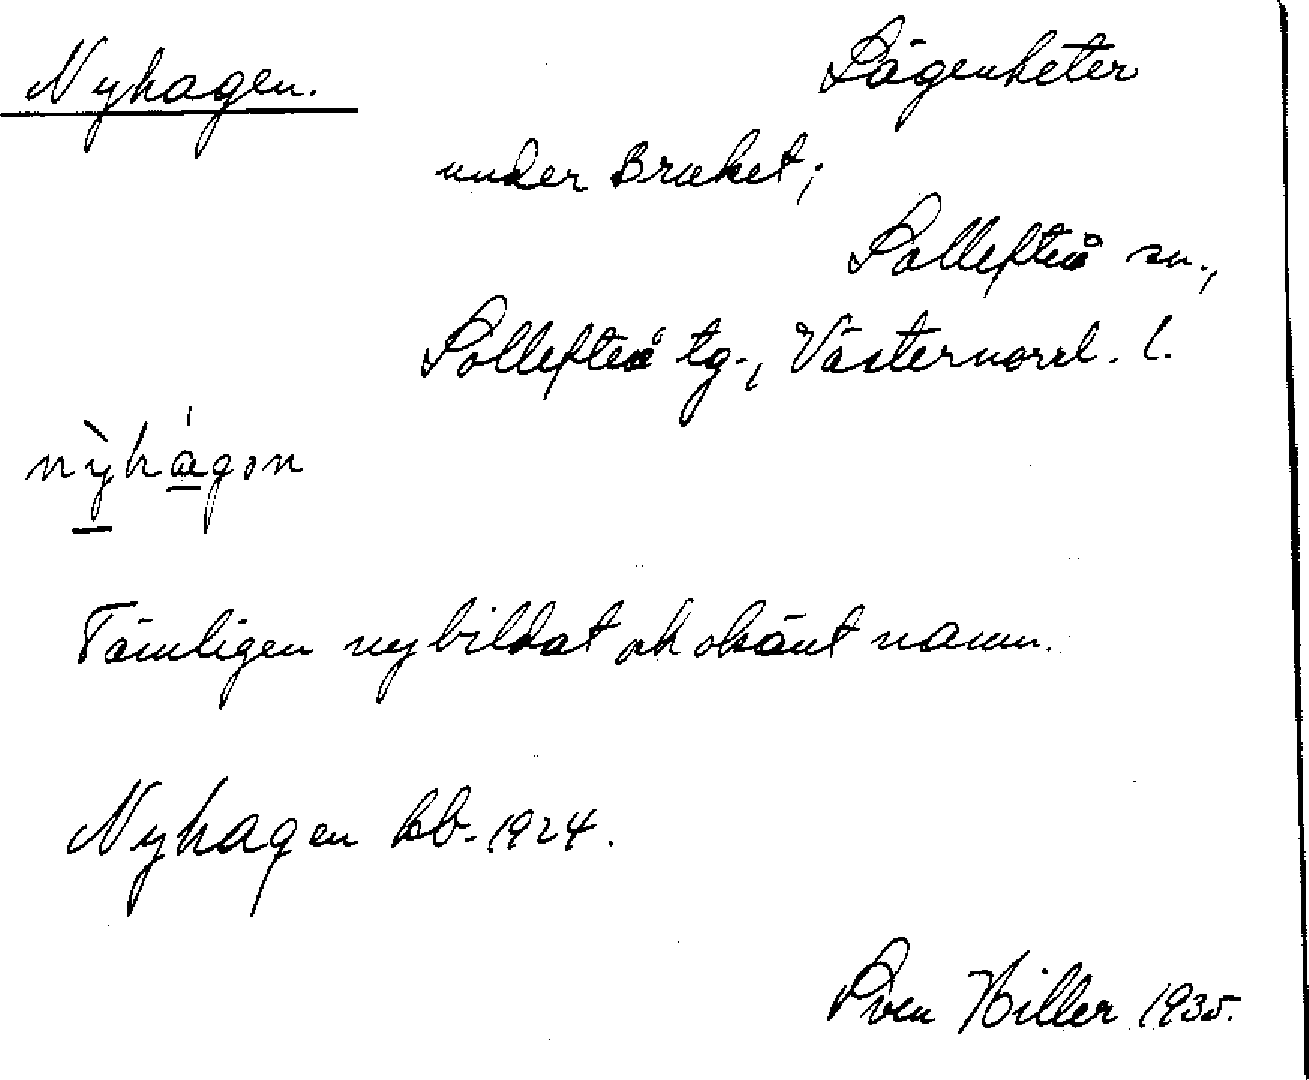 Nyhagen. Lägenheter
under Bruket;
Sollefteå sn.,
Sollefteå tg., Västernorrl. l.
nỳhágɔn
Tämligen nybildat ok okänt namn.
Nyhagen kb. 1924.
Sven Hiller 1935.